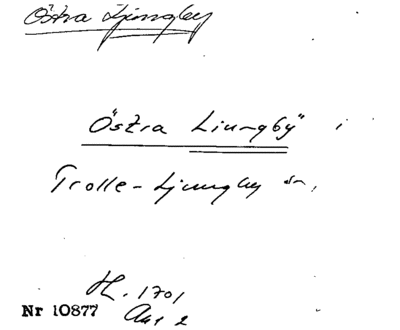 Östra Ljungby
"Östra Ljungby" i
Trolle-Ljungby sn,
H. 1701
Nr 10877